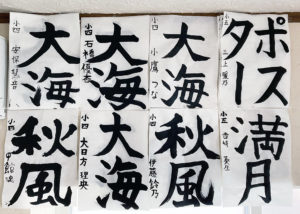 大海
小四 安保慧音
大海
小四 石神優杏
大海
小四 小鷹つな
ポスター
小五 三上
秋風
小四 甲
大海
小四 大日方理央
秋風
小四 伊藤鈴乃
満月
小五